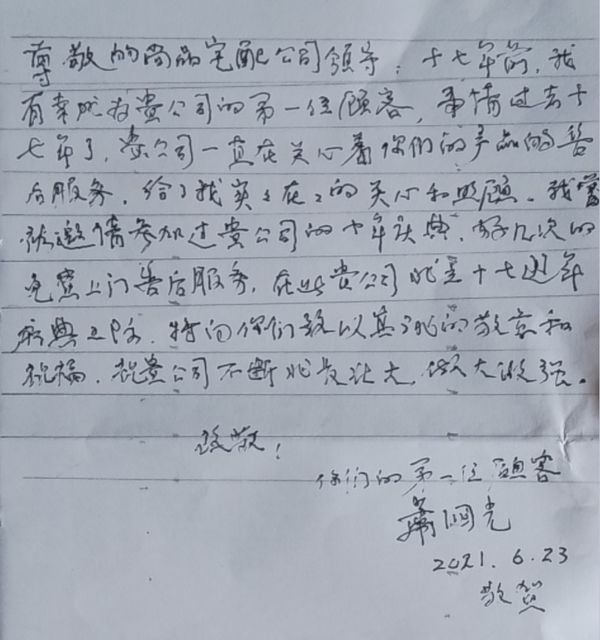 尊敬的尚品宅配公司领导：十七年前，我
有幸成为贵公司的第一位顾客，事情过去十
七年了，贵公司一直在关心着你们的产品的售
后服务，给了我实之在之的关心和照顾。我曾
被邀请参加过贵公司的十年庆典，好几次的
免费上门售后服务，在此贵公司十七週年
庆典之际，特向你们致以真诚的敬意和
祝福，祝贵公司不断壮大，做大做强。
致敬！
你们的第一位顾客
萧国光
2021.6.23
敬贺